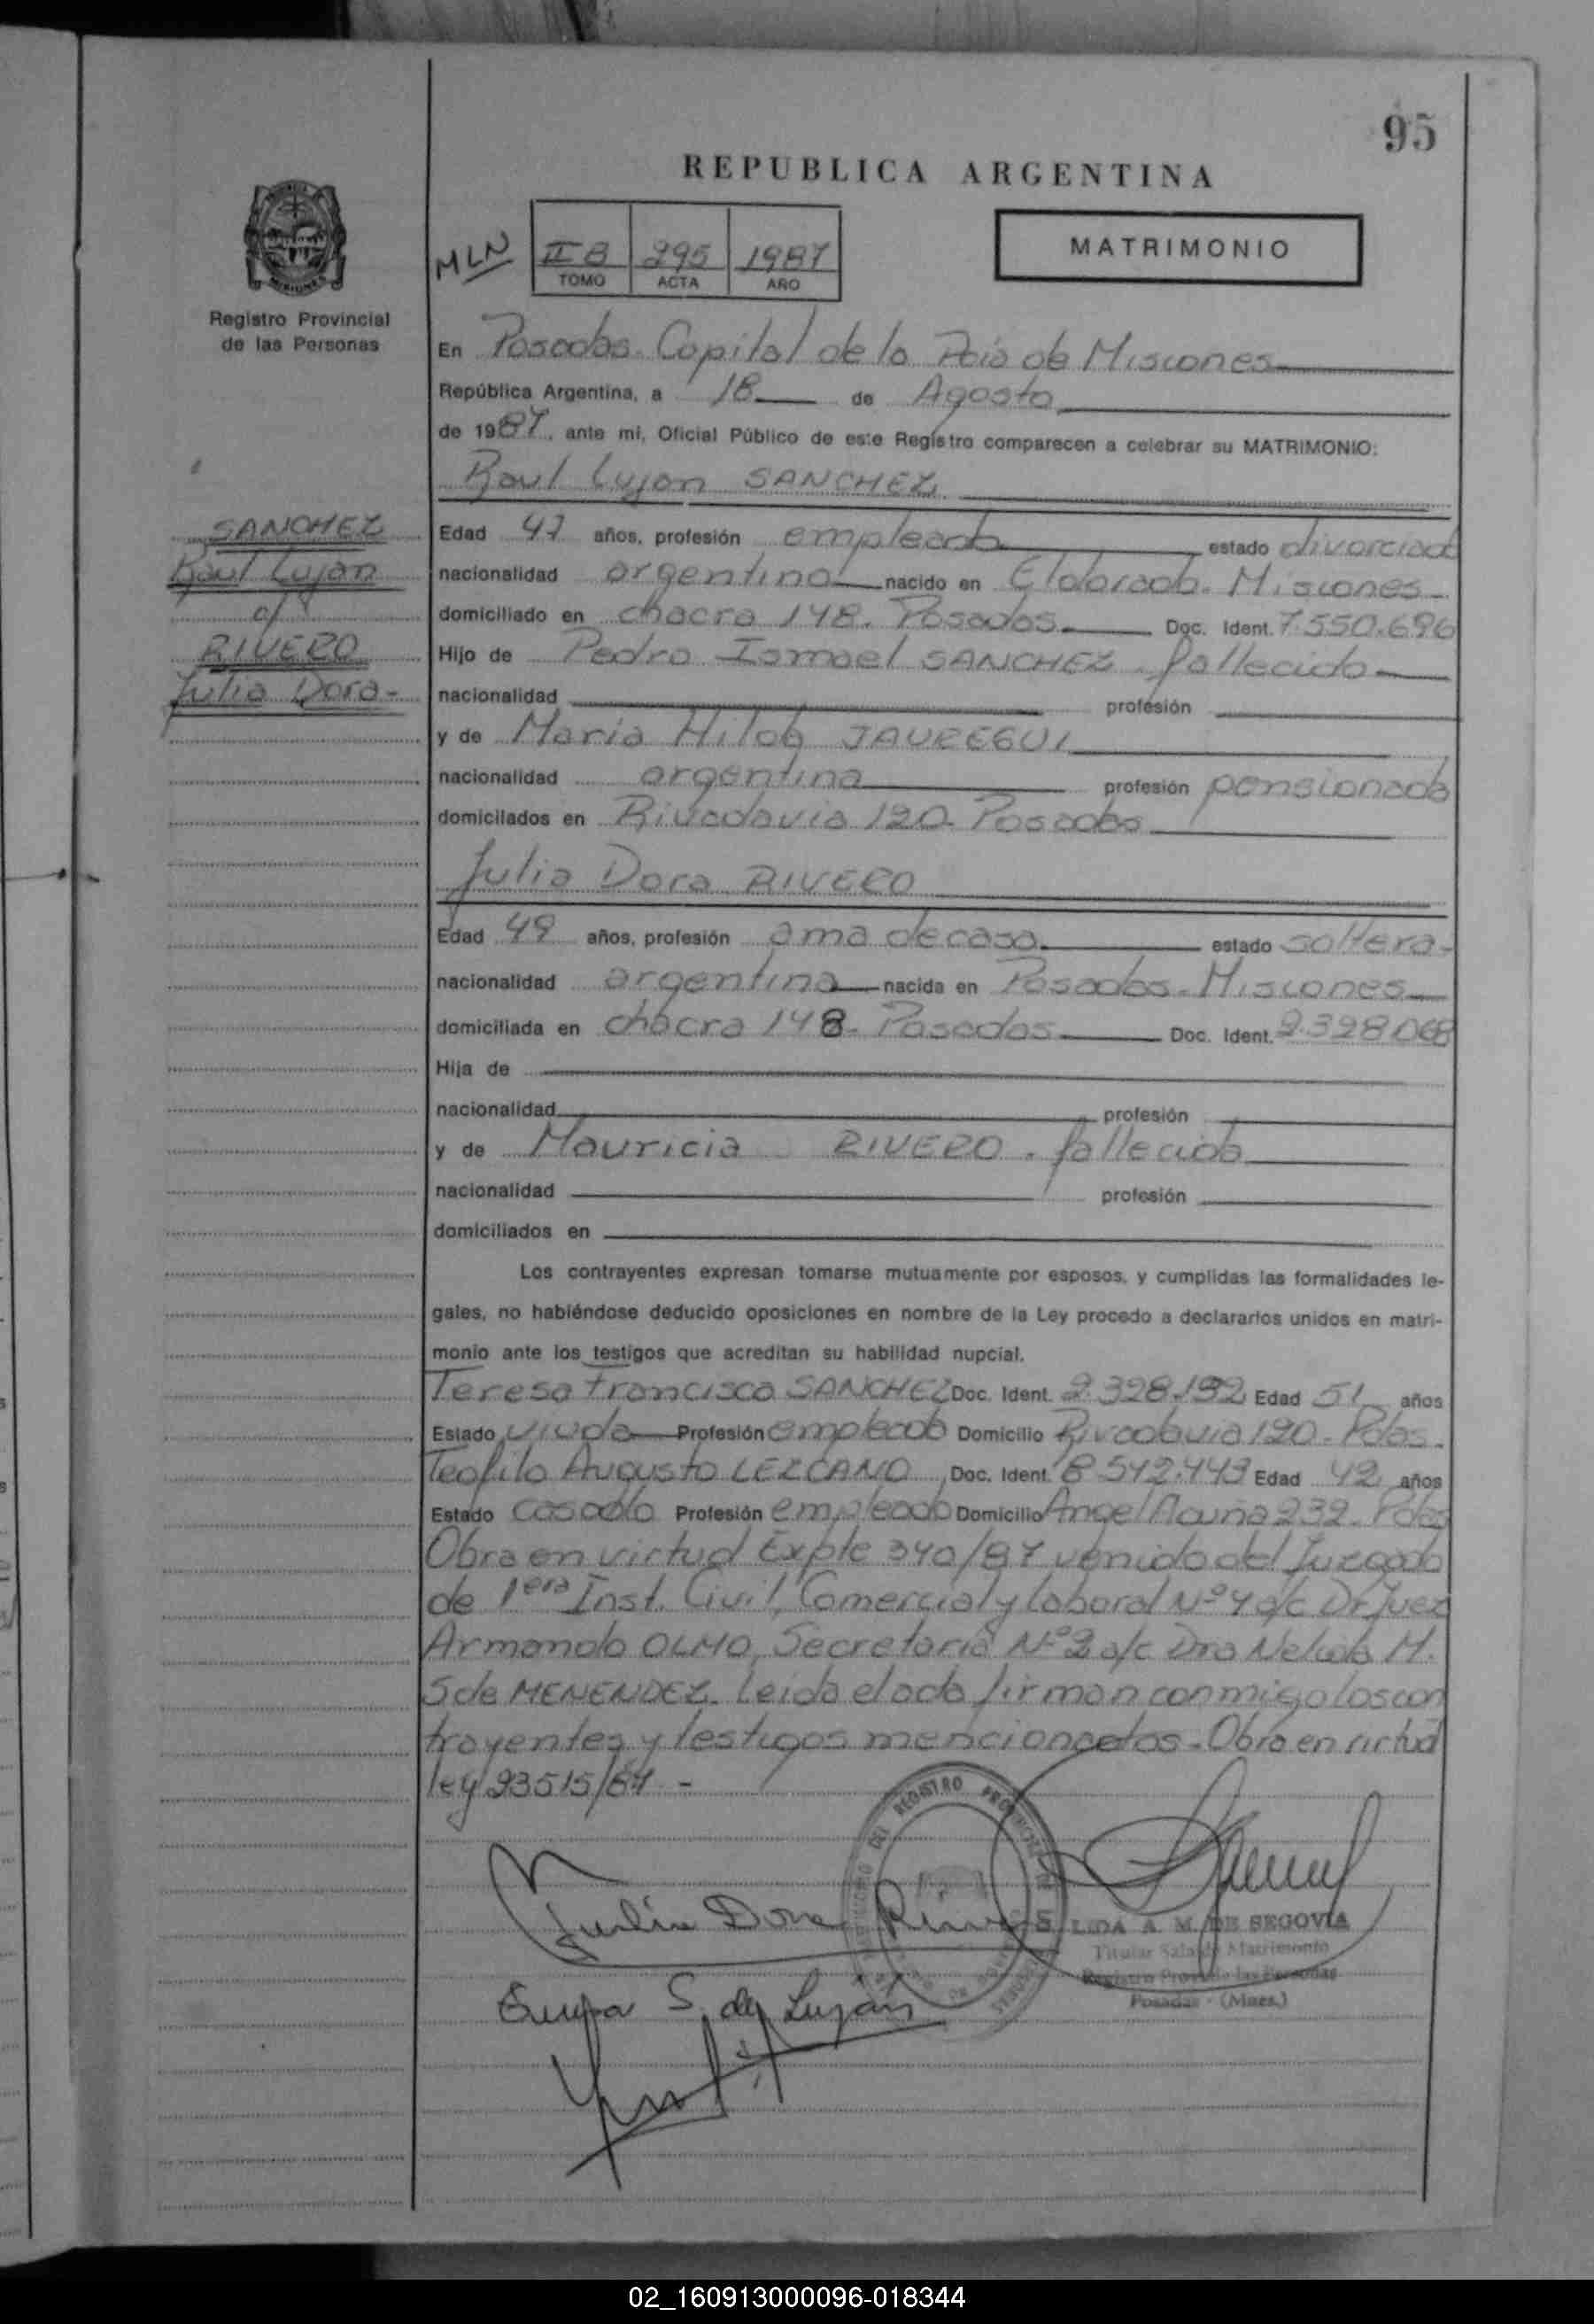 95
REPUBLICA ARGENTINA
MLN
II B 295 1987
TOMO ACTA AÑO
MATRIMONIO
Registro Provincial
de las Personas
En Posadas. Capital de la Pcia de Misiones
República Argentina, a 18 de Agosto
de 1987, ante mi, Oficial Público de este Registro comparecen a celebrar su MATRIMONIO:
Raul Lujan SANCHEZ
SANCHEZ
Raul Lujan
c/
RIVERO
Julia Dora-
Edad 47 años, profesión empleado estado divorciado
nacionalidad argentino nacido en Eldorado. Misiones
domiciliado en chacra 148. Posadas Doc. Ident. 7.550.696
Hijo de Pedro Ismael SANCHEZ. fallecido
nacionalidad profesión
y de Maria Hilda JAUREGUI
nacionalidad argentina profesión pensionada
domiciliados en Rivadavia 120. Posadas
Julia Dora RIVERO
Edad 49 años, profesión ama de casa estado soltera-
nacionalidad argentina nacida en Posadas. Misiones
domiciliada en chacra 148. Posadas Doc. Ident. 2.328.068
Hija de
nacionalidad profesión
y de Mauricia RIVERO. fallecida
nacionalidad profesión
domiciliados en
Los contrayentes expresan tomarse mutuamente por esposos, y cumplidas las formalidades le-
gales, no habiéndose deducido oposiciones en nombre de la Ley procedo a declararlos unidos en matri-
monio ante los testigos que acreditan su habilidad nupcial.
Teresa Francisca SANCHEZ Doc. Ident. 2.328.192 Edad 51 años
Estado viuda Profesión empleada Domicilio Rivadavia 120. Pdas.
Teofilo Augusto LEZCANO Doc. Ident. 8.542.443 Edad 42 años
Estado casado Profesión empleado Domicilio Angel Acuña 232. Pdas
Obra en virtud Expte 340/87 venido del Juzgado
de 1era Inst. Civil, Comercial y laboral Nº 4 a/c Dr Juez
Armando OLMO, Secretaria Nº 2 a/c Dra Nelida M.
S de MENENDEZ. Leida el acta firman conmigo los con
trayentes y testigos mencionados. Obra en virtud
ley 23515/87 -
Julia Dora Rivero
S. de Luján
LIDA A. M. DE SEGOVIA
Titular Sala de Matrimonio
Registro Prov. de las Personas
Posadas - (Mnes.)
02_160913000096-018344